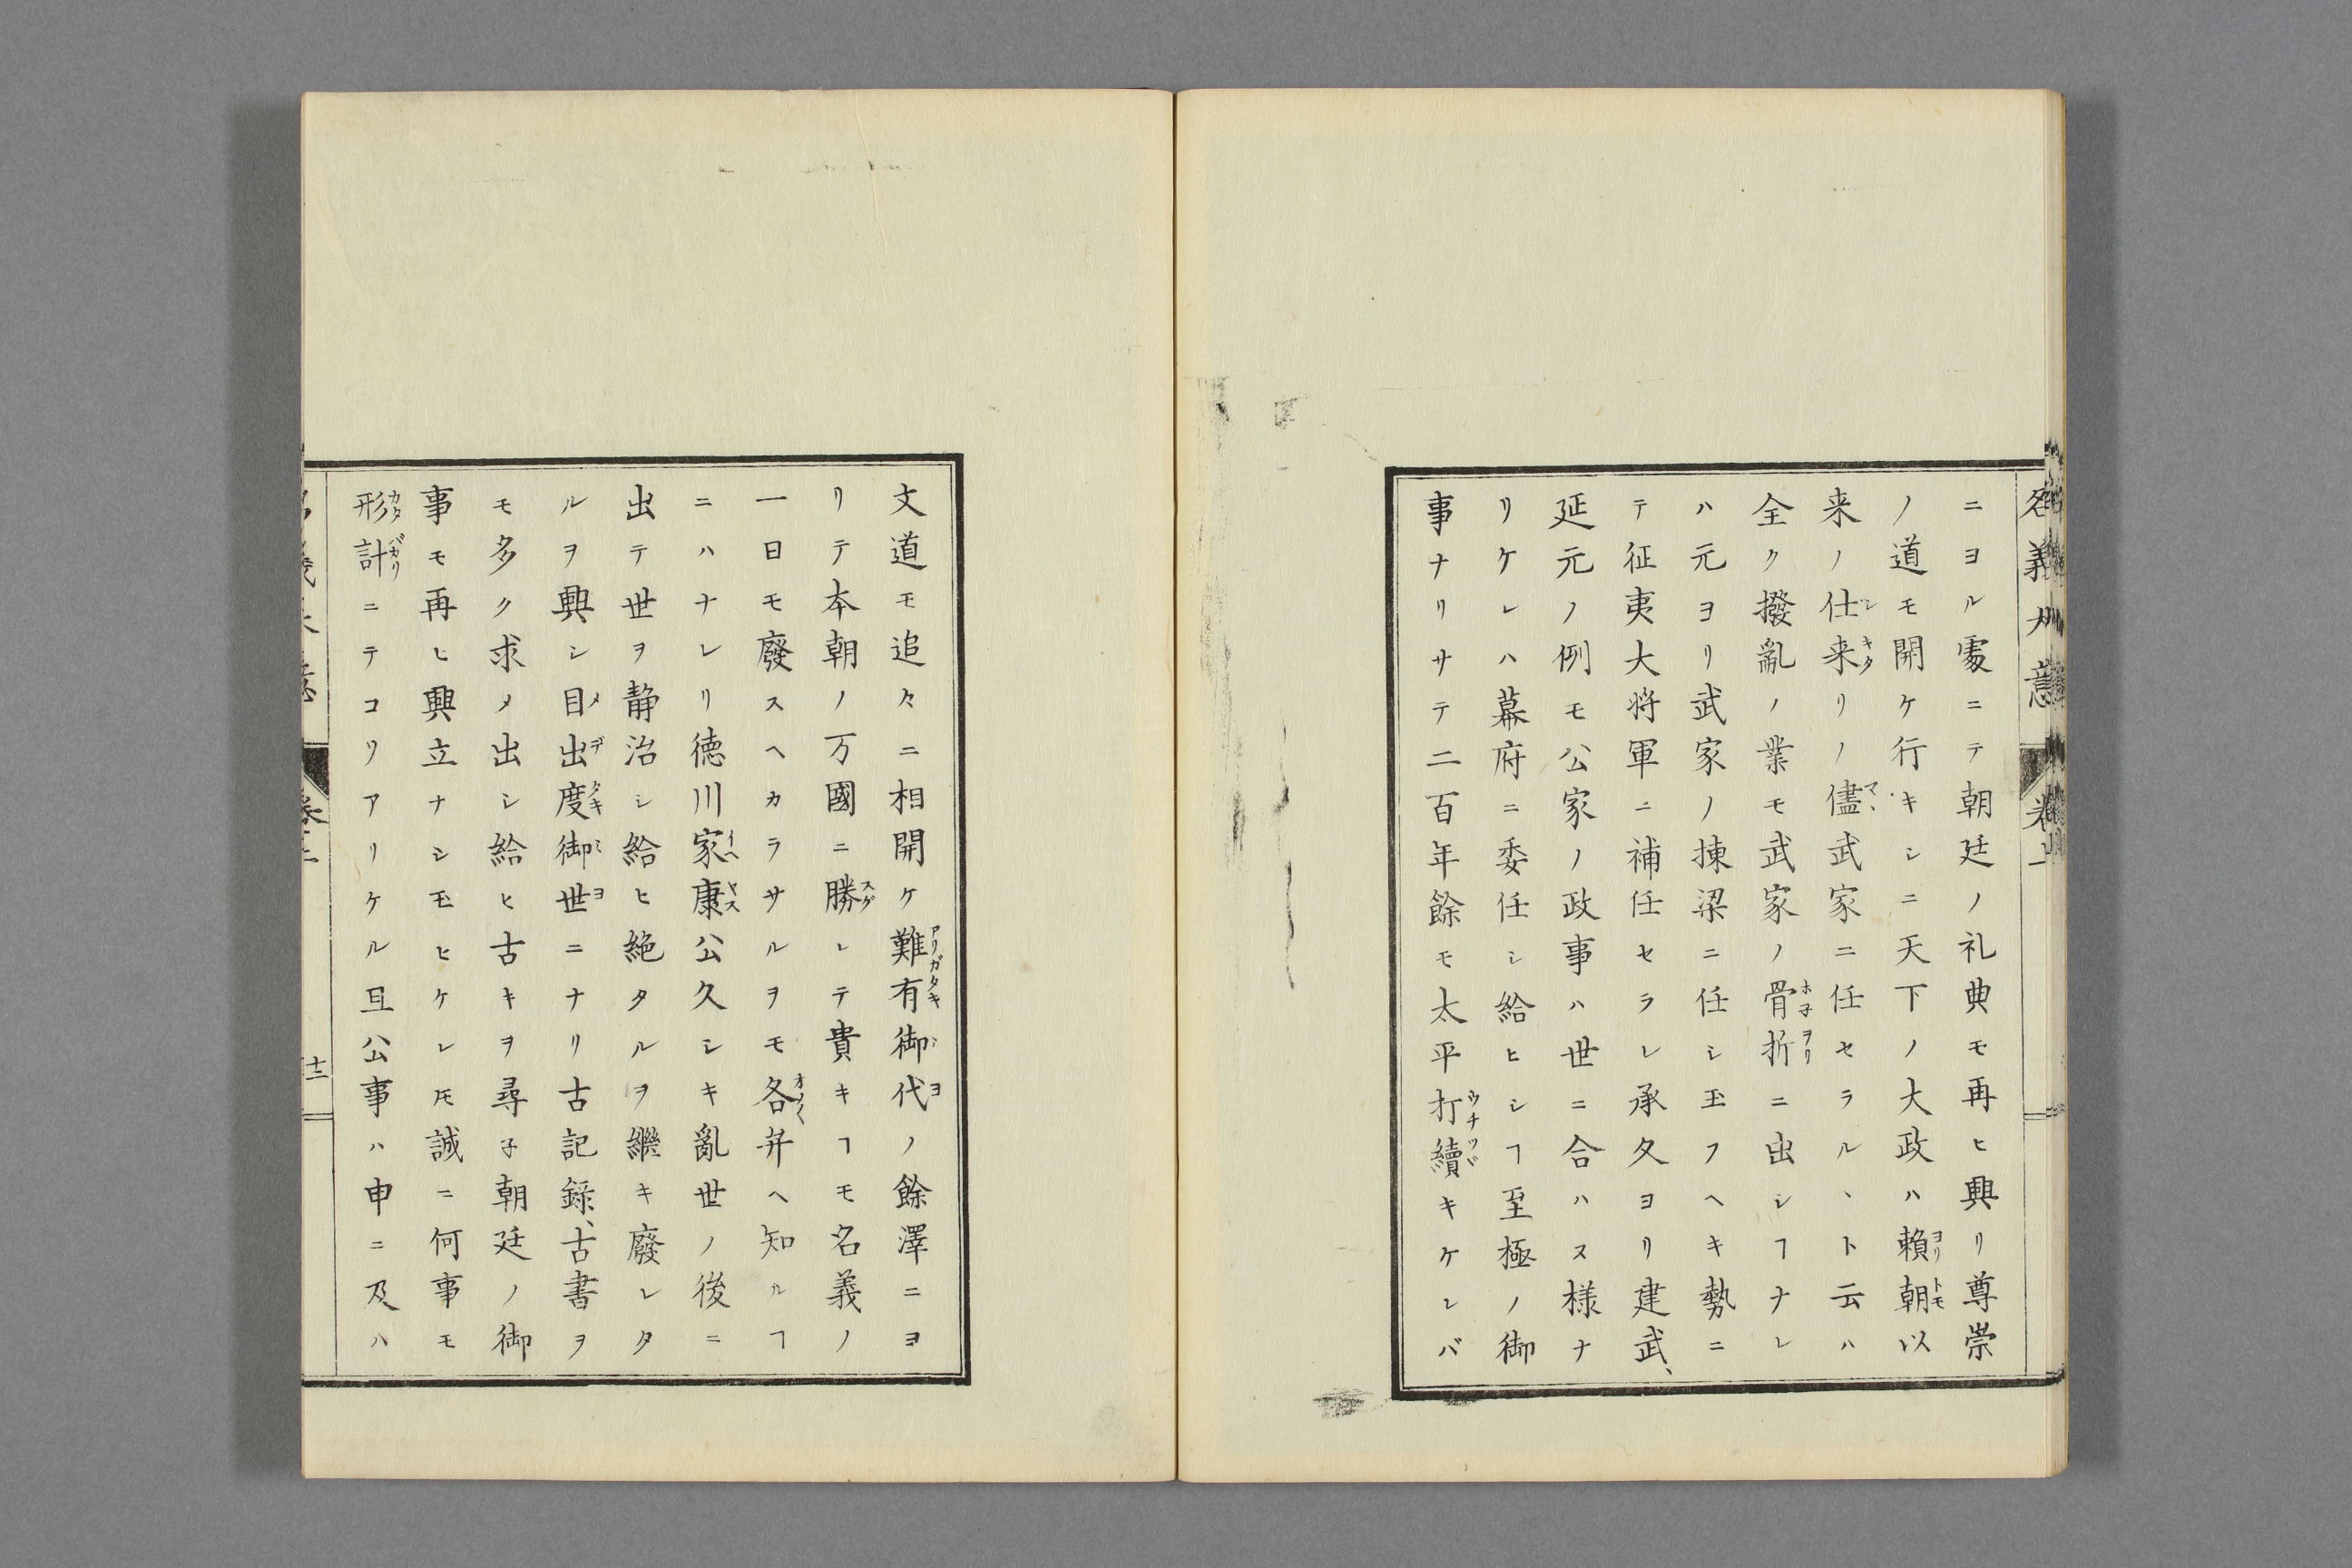 名義大意　卷上
ニヨル處ニテ朝廷ノ礼典モ再ヒ興リ尊崇
ノ道モ開ケ行キシニ天下ノ大政ハ賴朝以
来ノ仕来リノ儘武家ニ任セラルヽト云ハ
全ク撥亂ノ業モ武家ノ骨折ニ出シヿナレ
ハ元ヨリ武家ノ揀梁ニ任シ玉フヘキ勢ニ
テ征夷大将軍ニ補任セラレ承久ヨリ建武、
延元ノ例モ公家ノ政事ハ世ニ合ハヌ様ナ
リケレハ幕府ニ委任シ給ヒシヿ至極ノ御
事ナリサテ二百年餘モ太平打續キケレバ
文道モ追々ニ相開ケ難有御代ノ餘澤ニヨ
リテ本朝ノ万國ニ勝レテ貴キヿモ名義ノ
一日モ廢スヘカラサルヲモ各幷ヘ知ルヿ
ニハナレリ徳川家康公久シキ亂世ノ後ニ
出テ世ヲ静治シ給ヒ絶タルヲ繼キ廢レタ
ルヲ興シ目出度御世ニナリ古記録、古書ヲ
モ多ク求メ出シ給ヒ古キヲ尋子朝廷ノ御
事モ再ヒ興立ナシ玉ヒケレ𪜈誠ニ何事モ
形計ニテコソアリケル且公事ハ申ニ及ハ
十二